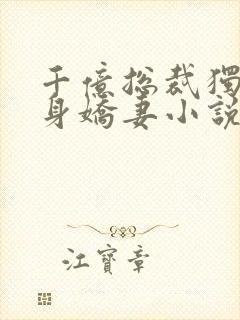 千億總裁獨
身嬌妻小說
江寶章